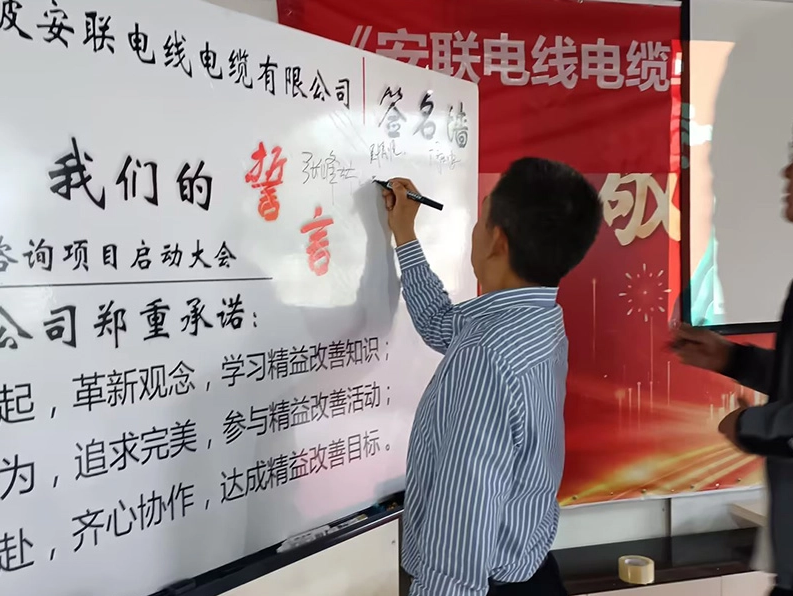 波安联电线电缆有限公司
签名墙
我们的
誓言
咨询项目启动大会
公司郑重承诺：
起，革新观念，学习精益改善知识；
为，追求完美，参与精益改善活动；
赴，齐心协作，达成精益改善目标。
《安联电线电缆